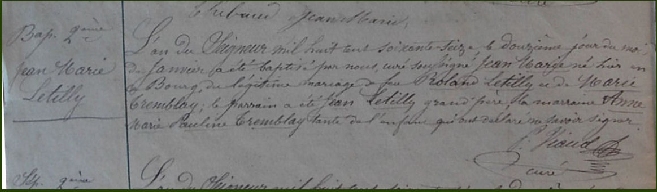 Thibaud Jean Marie.
Bap. 2ème
Jean Marie
Letilly
L'an du Seigneur mil huit cent soixante seize, le douzième jour du moi
de Janvier a été baptisé par nous, curé soussigné Jean Marie né hier en
le Bourg, du légitime mariage de feu Roland Letilly et de Marie
Tremblay; le parrain a été Jean Letilly grand père, la marraine Anne
Marie Pauline Tremblay tante de l'enfant qui ont déclaré ne savoir signer.
curé
Sép. 2ème
L'an du Seigneur mil huit cent